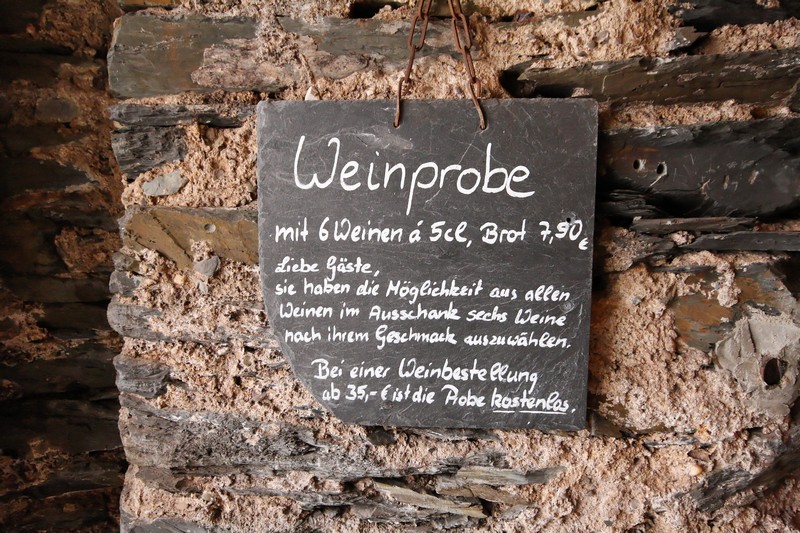 Weinprobe
mit 6 Weinen á 5cl, Brot 7,90€
Liebe Gäste,
sie haben die Möglichkeit aus allen
Weinen im Ausschank sechs Weine
nach ihrem Geschmack auszuwählen.
Bei einer Weinbestellung
ab 35,- € ist die Probe kostenlos.